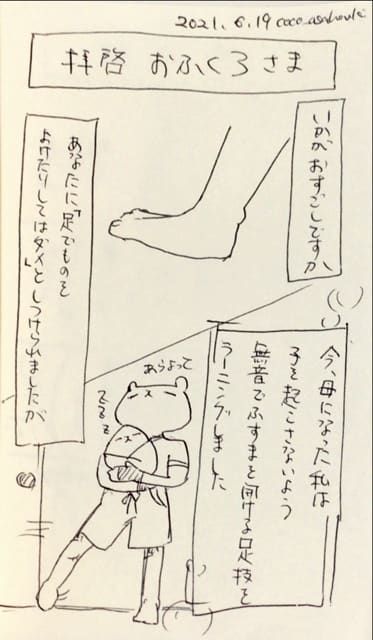 2021.6.19
拝啓 おふくろさま
いかがおすごしですか
あなたに「足でものを
よけたりしてはダメ」としつけられましたが
今、母になった私は
子を起こさないよう
無音でふすまを開ける足技を
ラーニングしました
あらよって